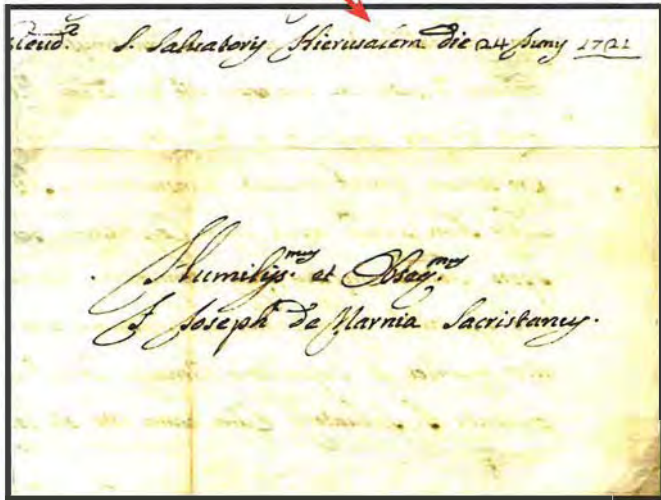 S. Salvatoris Hierusalem die 24 Juny 1721
Humilis.mus et Obseq.mus
F Joseph de Narnia Sacristanus.